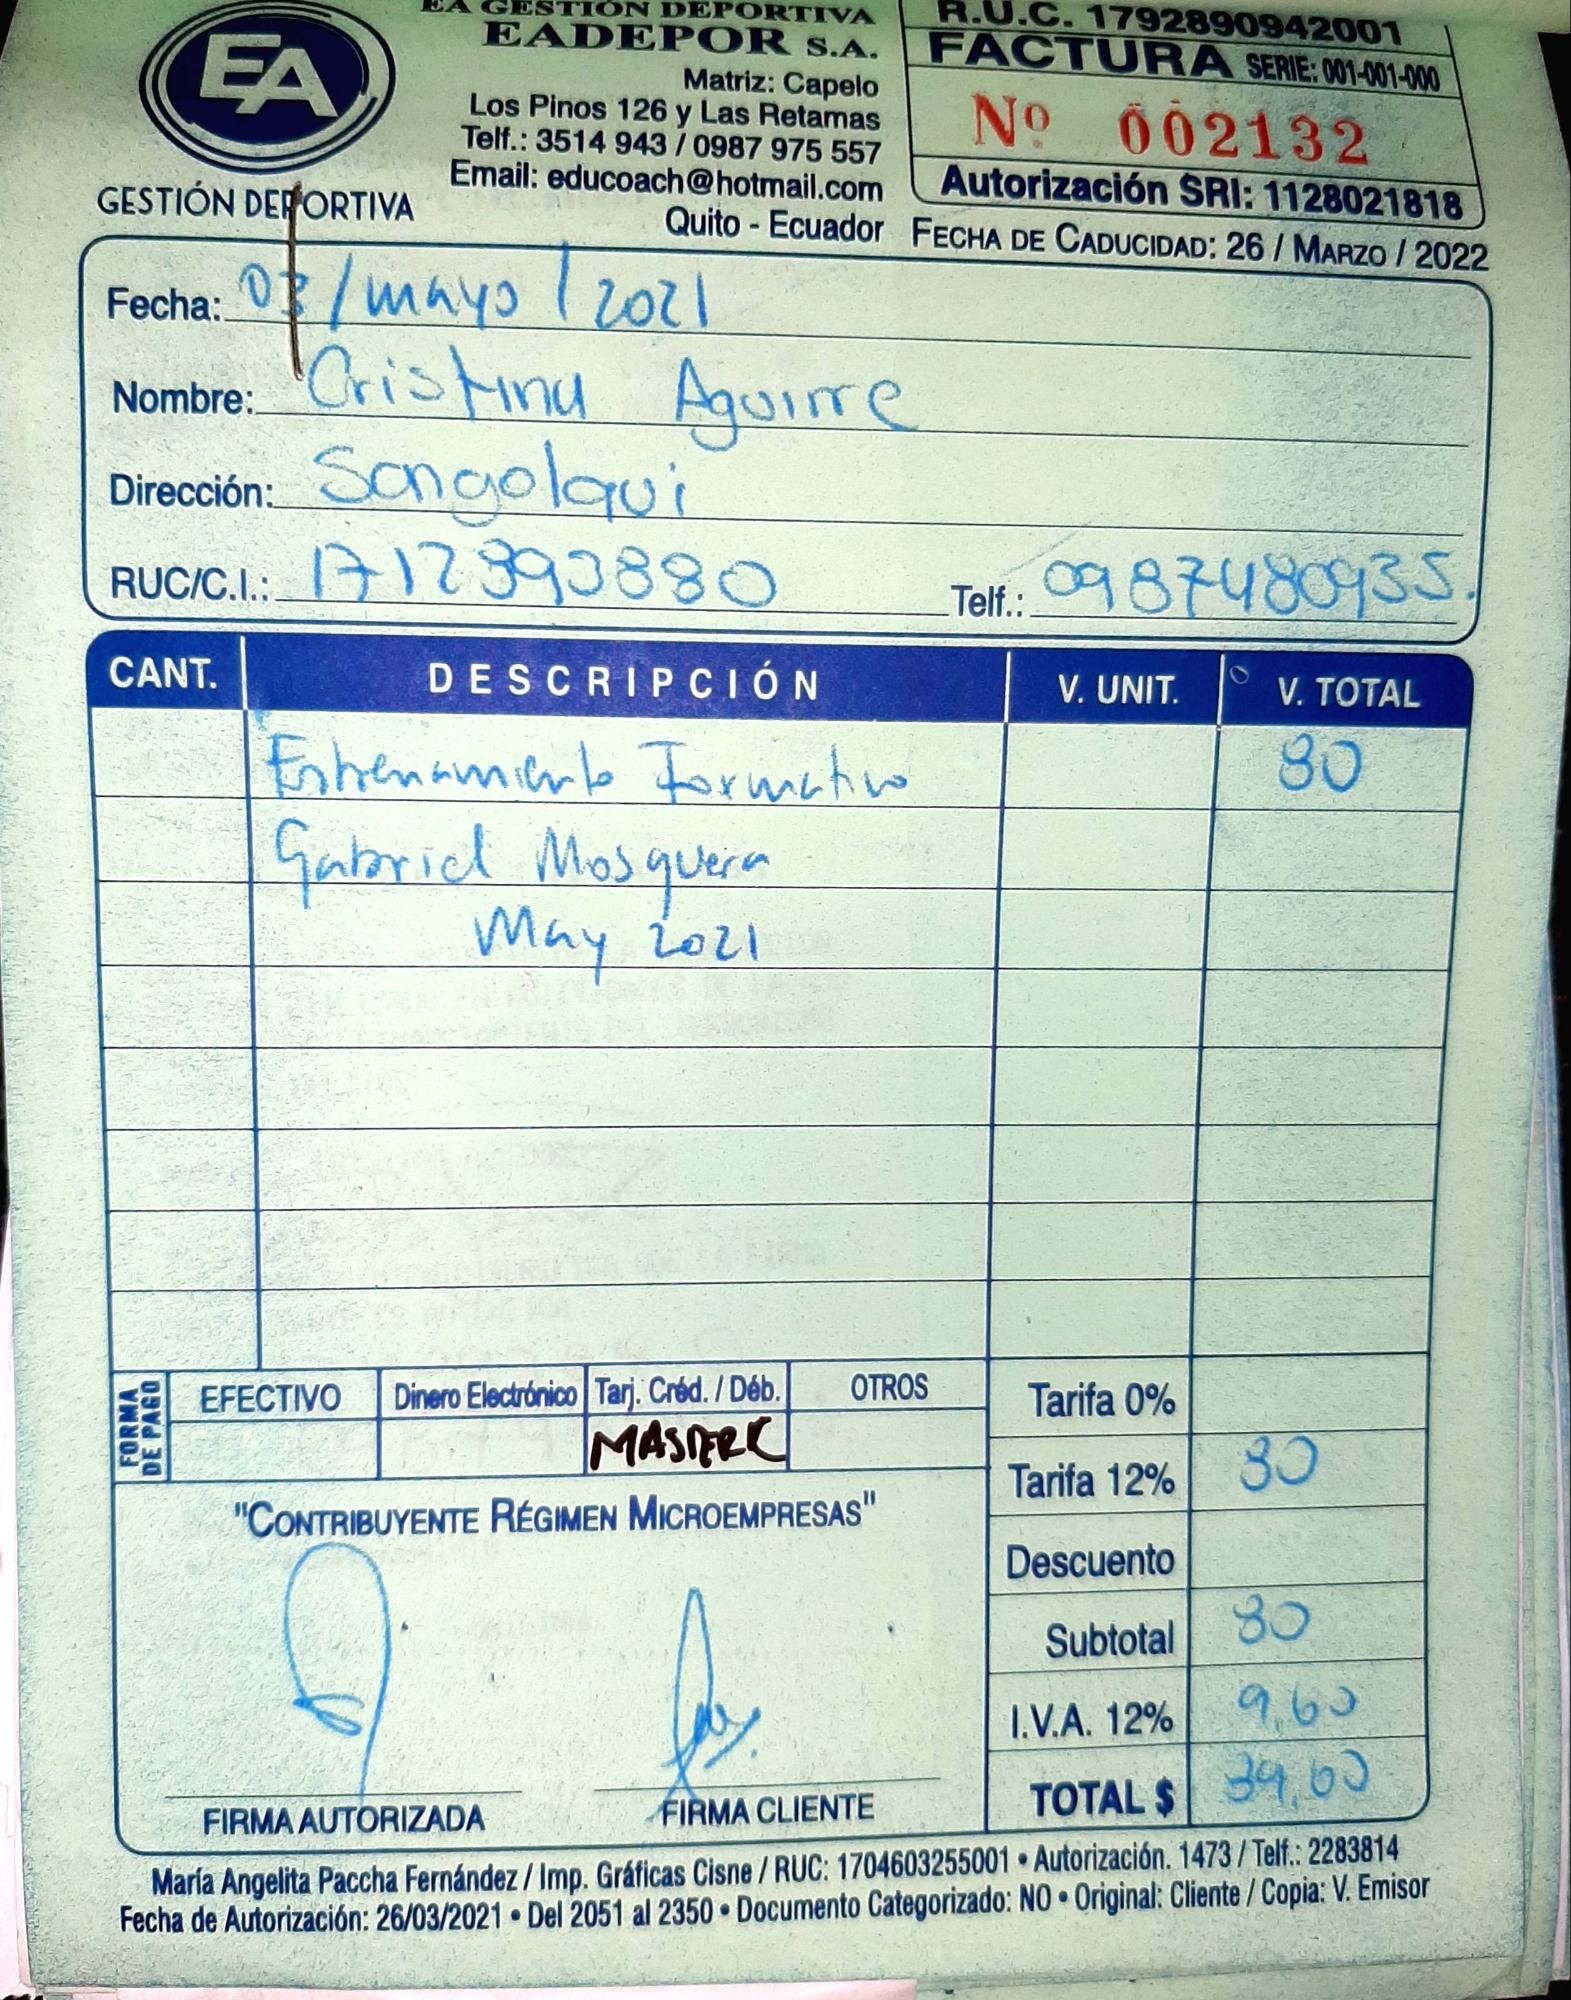 EA GESTIÓN DEPORTIVA
EADEPOR S.A.
Matriz: Capelo
Los Pinos 126 y Las Retamas
Telf.: 3514 943 / 0987 975 557
Email: educoach@hotmail.com
Quito - Ecuador
EA
GESTIÓN DEPORTIVA
R.U.C. 1792890942001
FACTURA SERIE: 001-001-000
Nº 002132
Autorización SRI: 1128021818
FECHA DE CADUCIDAD: 26 / MARZO / 2022
Fecha: 03/mayo/2021
Nombre: Cristina Aguirre
Dirección: Sangolqui
RUC/C.I.: 1712393880 Telf.: 0987480935.
CANT. DESCRIPCIÓN V. UNIT. V. TOTAL
Entrenamiento Formativo 80
Gabriel Mosquera
May 2021
FORMA DE PAGO
EFECTIVO Dinero Electrónico Tarj. Créd. / Déb. OTROS
MASTERC
Tarifa 0%
Tarifa 12% 80
Descuento
Subtotal 80
I.V.A. 12% 9,60
TOTAL $ 89,60
"CONTRIBUYENTE RÉGIMEN MICROEMPRESAS"
FIRMA AUTORIZADA FIRMA CLIENTE
María Angelita Paccha Fernández / Imp. Gráficas Cisne / RUC: 1704603255001 • Autorización. 1473 / Telf.: 2283814
Fecha de Autorización: 26/03/2021 • Del 2051 al 2350 • Documento Categorizado: NO • Original: Cliente / Copia: V. Emisor